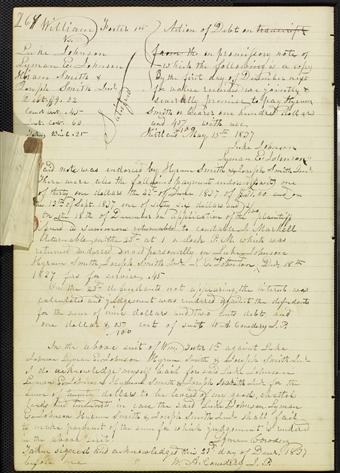 264 William Foster 1st Action of Debt on transcript
Vs. from the on promissory note of
Luke Johnson which the following is a copy
Lyman E. Johnson By the first day of December next
Hyrum Smith & for value received we jointly &
Joseph Smith Junr severally promise to pay Hyrum
Debt 89.02 Smith or bearer one hundred dollars
with use
Satisfied Kirtland May 15th 1837
Luke Johnson
Lyman E. Johnson
Said note was endorsed by Hyrum Smith & Joseph Smith Junr
There were also the following payment endorsements one
of thirty one dollars the 22d of June 1837 of and on
the 13th of Sept. 1837 one of sixty six dollars and
On the 18th of December on application of the plaintiff
issued a summons returnable to constable S. Markell
returnable on the 23d at 1 oclock P.M. which was
returned endorsed Served personally on Luke Johnson
Hyrum Smith & Joseph Smith Junr Decr 18th
1837 fees for service
On the 23d defendants not appearing the interest was
calculated and judgement was rendered against the defendants
for the sum of nine dollars and two cents debt and
one dollar & cost of suit W. A. Cowdery J.P.
In the above suit of Wm. Foster 1st against Luke
Johnson Lyman E. Johnson Hyrum Smith & Joseph Smith Junr
I do acknowledge myself bail for said Luke Johnson
Lyman E. Johnson Hyrum Smith & Joseph Smith Junr for the
sum of twenty dollars to be levied of my goods chattels
lands and tenements in case the said Luke Johnson Lyman
E. Johnson Hyrum Smith & Joseph Smith Junr shall fail
to make payment of the sum for which judgement is rendered
in the above suit
Cowdery
Taken signed and acknowledged this 23d day of Decr. 1837
before me W. A. Cowdery J.P.